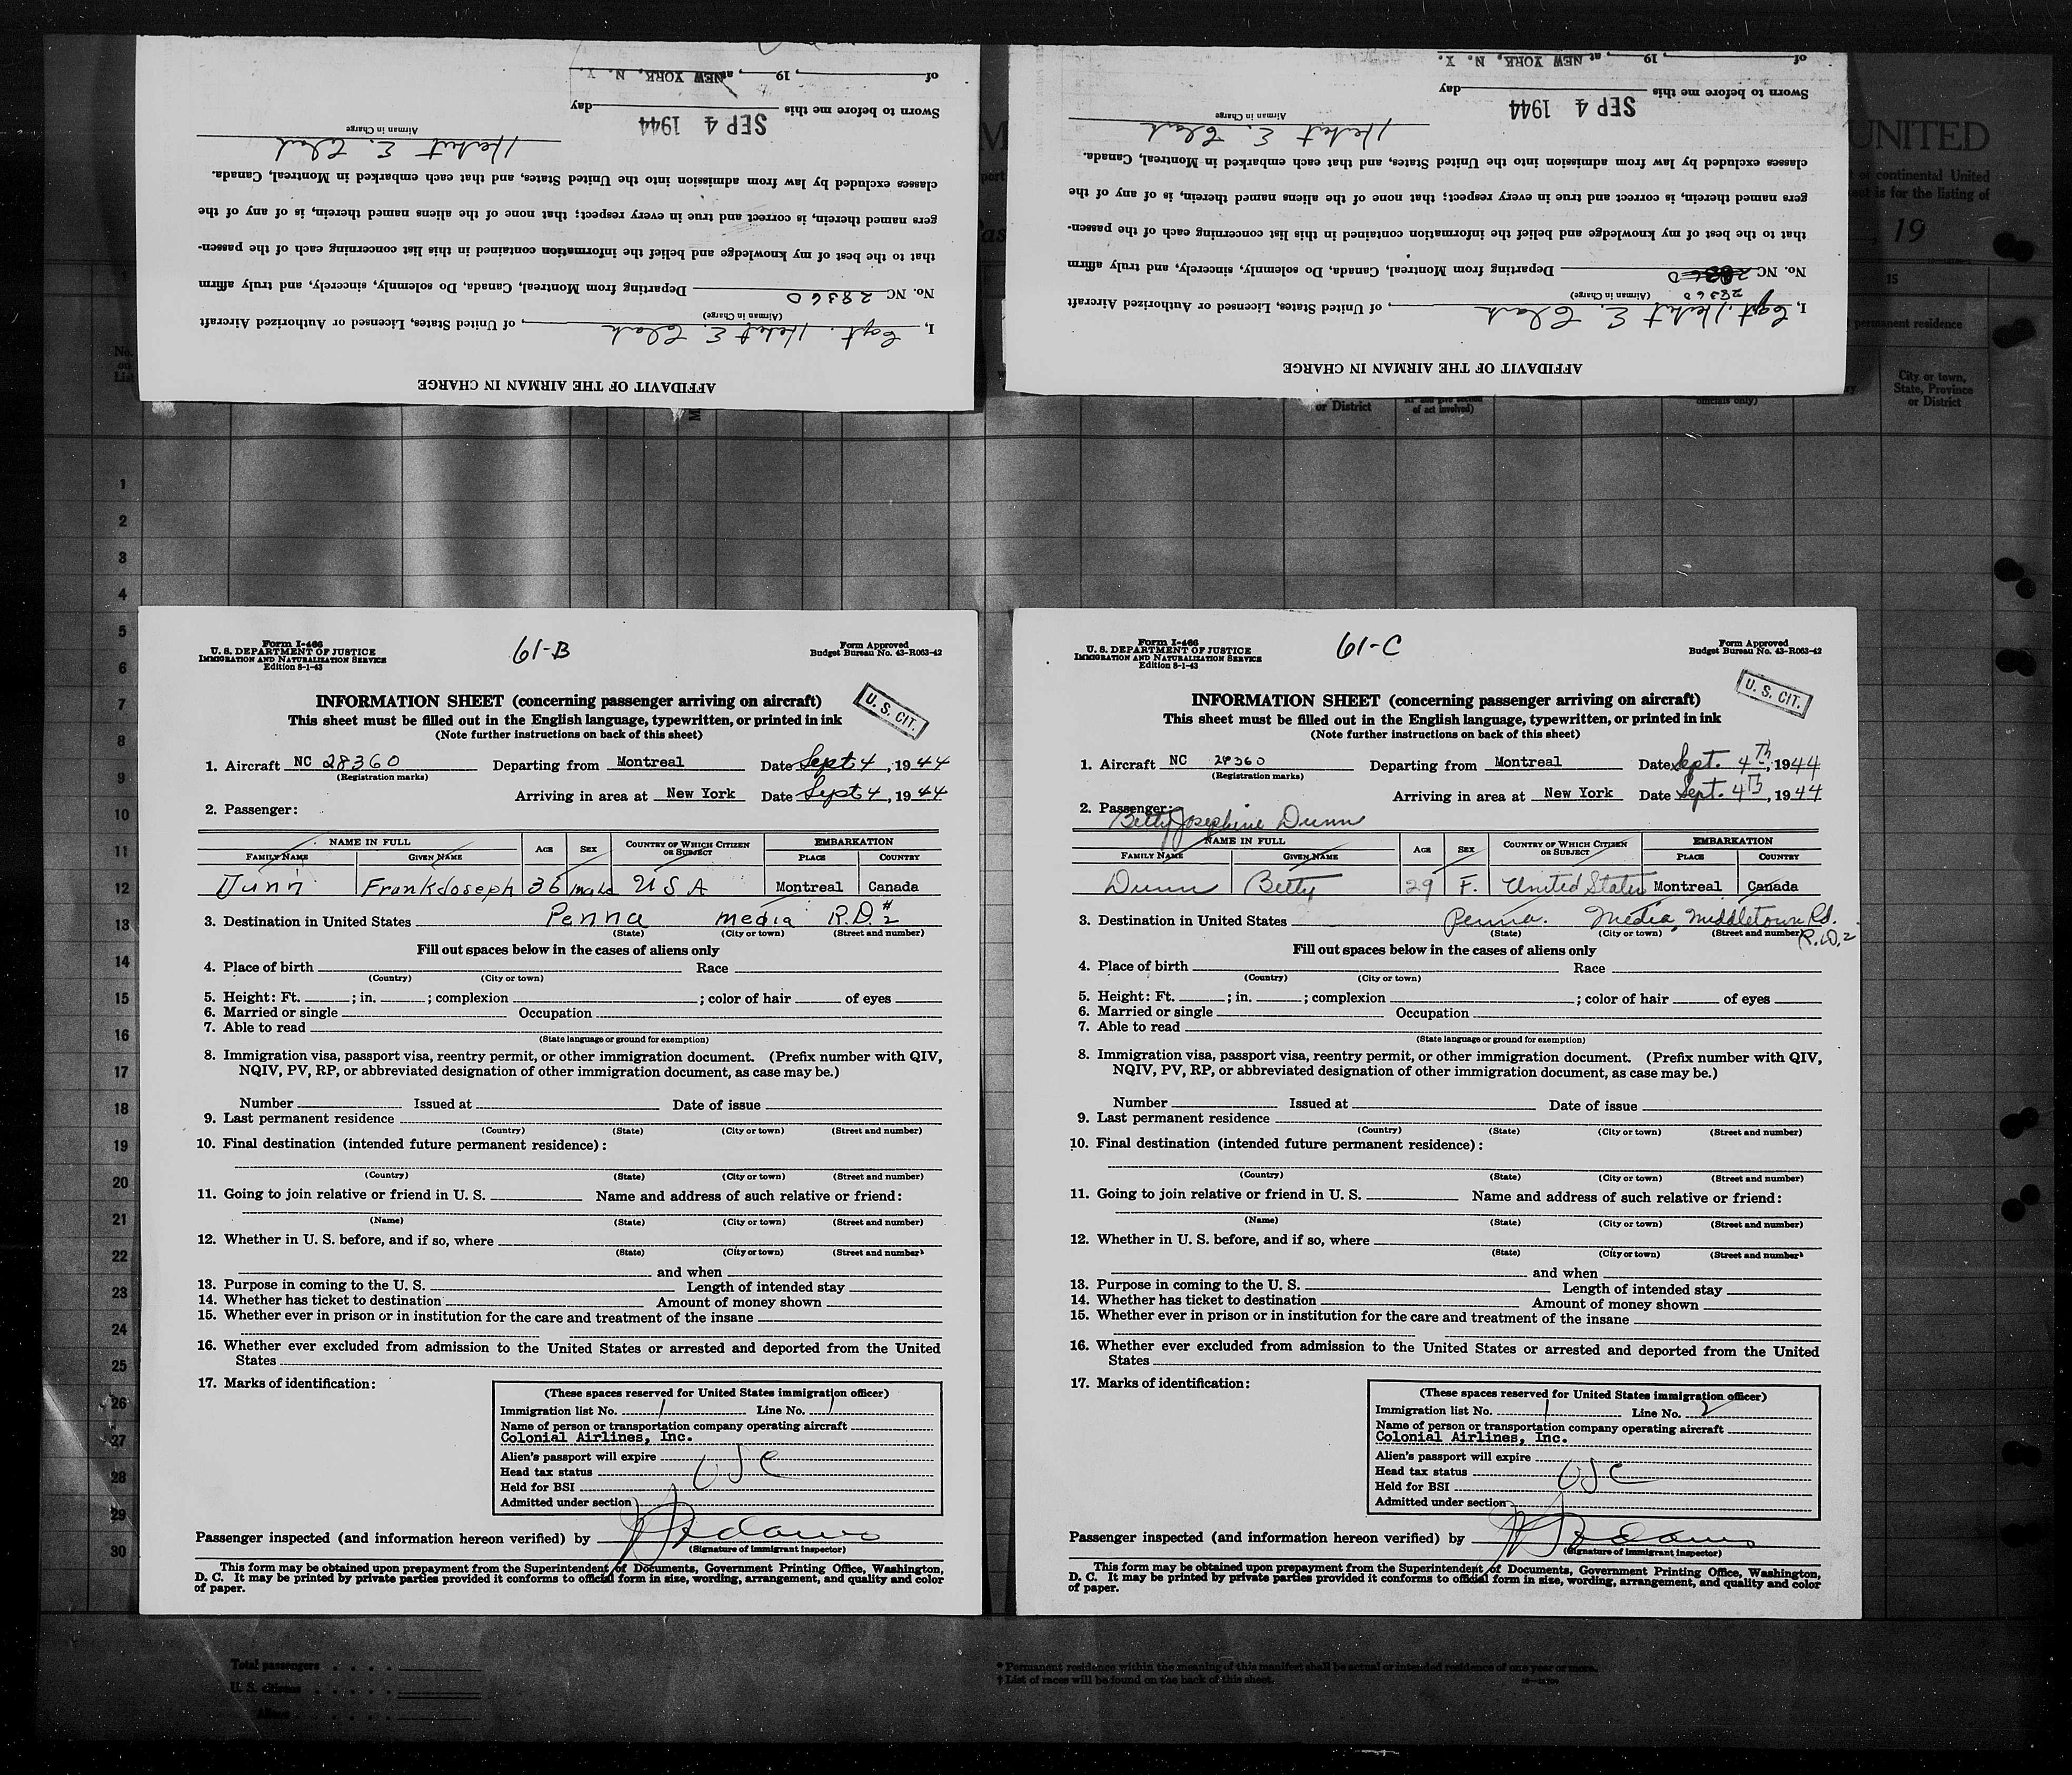 of ______, 19__, at NEW YORK, N. Y.
Sworn to before me this ______ day
SEP 4 1944
Airman in Charge
Herbert E. Clark
classes excluded by law from admission into the United States, and that each embarked in Montreal, Canada.
gers named therein, is correct and true in every respect; that none of the aliens named therein, is of any of the
that to the best of my knowledge and belief the information contained in this list concerning each of the passen-
No. NC 28360 Departing from Montreal, Canada, Do solemnly, sincerely, and truly affirm
(Airman in Charge)
I, Capt. Herbert E. Clark, of United States, Licensed or Authorized Aircraft
AFFIDAVIT OF THE AIRMAN IN CHARGE
of ______, 19__, at NEW YORK, N. Y.
Sworn to before me this ______ day
SEP 4 1944
Airman in Charge
Herbert E. Clark
classes excluded by law from admission into the United States, and that each embarked in Montreal, Canada.
gers named therein, is correct and true in every respect; that none of the aliens named therein, is of any of the
that to the best of my knowledge and belief the information contained in this list concerning each of the passen-
No. NC 28360 Departing from Montreal, Canada, Do solemnly, sincerely, and truly affirm
28360 (Airman in Charge)
I, Capt. Herbert E. Clark, of United States, Licensed or Authorized Aircraft
AFFIDAVIT OF THE AIRMAN IN CHARGE
UNITED
of continental United
is for the listing of
, 19
15
permanent residence
No. on List
or District
of act involved)
officials only)
City or town, State, Province or District
1
2
3
4
5
6
7
8
9
10
11
12
13
14
15
16
17
18
19
20
21
22
23
24
25
26
27
28
29
30
Form I-466
U. S. DEPARTMENT OF JUSTICE
IMMIGRATION AND NATURALIZATION SERVICE
Edition 8-1-43
61-B
Form Approved
Budget Bureau No. 43-R063-42
INFORMATION SHEET (concerning passenger arriving on aircraft)
U. S. CIT.
This sheet must be filled out in the English language, typewritten, or printed in ink
(Note further instructions on back of this sheet)
1. Aircraft NC 28360 Departing from Montreal Date Sept 4, 1944
(Registration marks)
Arriving in area at New York Date Sept 4, 1944
2. Passenger:
NAME IN FULL AGE SEX COUNTRY OF WHICH CITIZEN OR SUBJECT EMBARKATION
FAMILY NAME GIVEN NAME PLACE COUNTRY
Dunn Frank Joseph 36 male U S A Montreal Canada
3. Destination in United States Penna media R.D. #2
(State) (City or town) (Street and number)
Fill out spaces below in the cases of aliens only
4. Place of birth Race
(Country) (City or town)
5. Height: Ft. ; in. ; complexion ; color of hair of eyes
6. Married or single Occupation
7. Able to read
(State language or ground for exemption)
8. Immigration visa, passport visa, reentry permit, or other immigration document. (Prefix number with QIV,
NQIV, PV, RP, or abbreviated designation of other immigration document, as case may be.)
Number Issued at Date of issue
9. Last permanent residence
(Country) (State) (City or town) (Street and number)
10. Final destination (intended future permanent residence):
(Country) (State) (City or town) (Street and number)
11. Going to join relative or friend in U. S. Name and address of such relative or friend:
(Name) (State) (City or town) (Street and number)
12. Whether in U. S. before, and if so, where
(State) (City or town) (Street and number)
and when
13. Purpose in coming to the U. S. Length of intended stay
14. Whether has ticket to destination Amount of money shown
15. Whether ever in prison or in institution for the care and treatment of the insane
16. Whether ever excluded from admission to the United States or arrested and deported from the United
States
17. Marks of identification:
(These spaces reserved for United States immigration officer)
Immigration list No. 1 Line No. 1
Name of person or transportation company operating aircraft
Colonial Airlines, Inc.
Alien's passport will expire
Head tax status USC
Held for BSI
Admitted under section
Passenger inspected (and information hereon verified) by
(Signature of immigrant inspector)
This form may be obtained upon prepayment from the Superintendent of Documents, Government Printing Office, Washington,
D. C. It may be printed by private parties provided it conforms to official form in size, wording, arrangement, and quality and color
of paper.
Form I-466
U. S. DEPARTMENT OF JUSTICE
IMMIGRATION AND NATURALIZATION SERVICE
Edition 8-1-43
61-C
Form Approved
Budget Bureau No. 43-R063-42
INFORMATION SHEET (concerning passenger arriving on aircraft)
U. S. CIT.
This sheet must be filled out in the English language, typewritten, or printed in ink
(Note further instructions on back of this sheet)
1. Aircraft NC 28360 Departing from Montreal Date Sept. 4th, 1944
(Registration marks)
Arriving in area at New York Date Sept. 4th, 1944
2. Passenger:
Betty Josephine Dunn
NAME IN FULL AGE SEX COUNTRY OF WHICH CITIZEN OR SUBJECT EMBARKATION
FAMILY NAME GIVEN NAME PLACE COUNTRY
Dunn Betty 29 F. United States Montreal Canada
3. Destination in United States Penna. Media, Middletown Rd.
(State) (City or town) (Street and number) R.D. 2
Fill out spaces below in the cases of aliens only
4. Place of birth Race
(Country) (City or town)
5. Height: Ft. ; in. ; complexion ; color of hair of eyes
6. Married or single Occupation
7. Able to read
(State language or ground for exemption)
8. Immigration visa, passport visa, reentry permit, or other immigration document. (Prefix number with QIV,
NQIV, PV, RP, or abbreviated designation of other immigration document, as case may be.)
Number Issued at Date of issue
9. Last permanent residence
(Country) (State) (City or town) (Street and number)
10. Final destination (intended future permanent residence):
(Country) (State) (City or town) (Street and number)
11. Going to join relative or friend in U. S. Name and address of such relative or friend:
(Name) (State) (City or town) (Street and number)
12. Whether in U. S. before, and if so, where
(State) (City or town) (Street and number)
and when
13. Purpose in coming to the U. S. Length of intended stay
14. Whether has ticket to destination Amount of money shown
15. Whether ever in prison or in institution for the care and treatment of the insane
16. Whether ever excluded from admission to the United States or arrested and deported from the United
States
17. Marks of identification:
(These spaces reserved for United States immigration officer)
Immigration list No. 1 Line No. 2
Name of person or transportation company operating aircraft
Colonial Airlines, Inc.
Alien's passport will expire
Head tax status USC
Held for BSI
Admitted under section
Passenger inspected (and information hereon verified) by
(Signature of immigrant inspector)
This form may be obtained upon prepayment from the Superintendent of Documents, Government Printing Office, Washington,
D. C. It may be printed by private parties provided it conforms to official form in size, wording, arrangement, and quality and color
of paper.
Total passengers
U. S. citizens
Aliens
* Permanent residence within the meaning of this manifest shall be actual or intended residence of one year or more.
† List of races will be found on the back of this sheet.